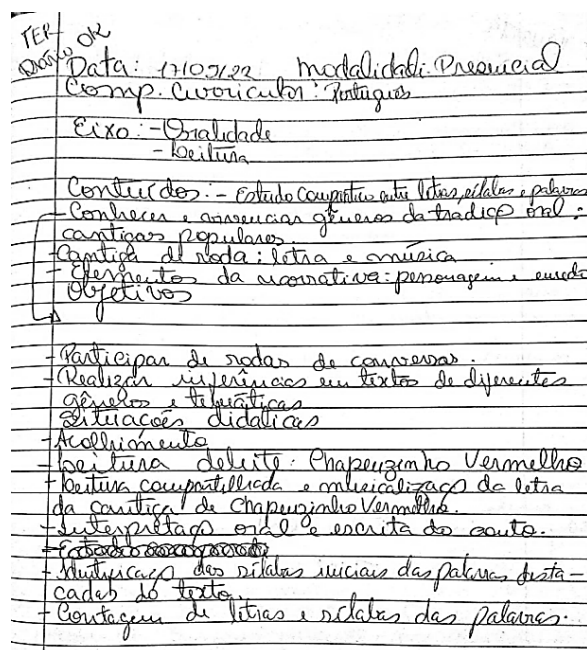 TER OK
Diário
Data: 17/05/22 Modalidade: Presencial
Comp. Curricular: Português
Eixo: - Oralidade
- Leitura
Conteúdos: - Estudo Comparativo entre letras, sílabas e palavras
- Conhecer e vivenciar gêneros da tradição oral:
cantigas populares.
- Cantiga de roda: letra e música
- Elementos da narrativa: personagem e enredo
Objetivos
- Participar de rodas de conversas.
- Realizar inferências em textos de diferentes
gêneros e temáticas
Situações didáticas
- Acolhimento
- Leitura deleite: Chapeuzinho Vermelho
- Leitura compartilhada e musicalização da letra
da cantiga de Chapeuzinho Vermelho.
- Interpretação oral e escrita do conto.
- Identificação das sílabas iniciais das palavras desta-
cadas do texto.
- Contagem de letras e sílabas das palavras.